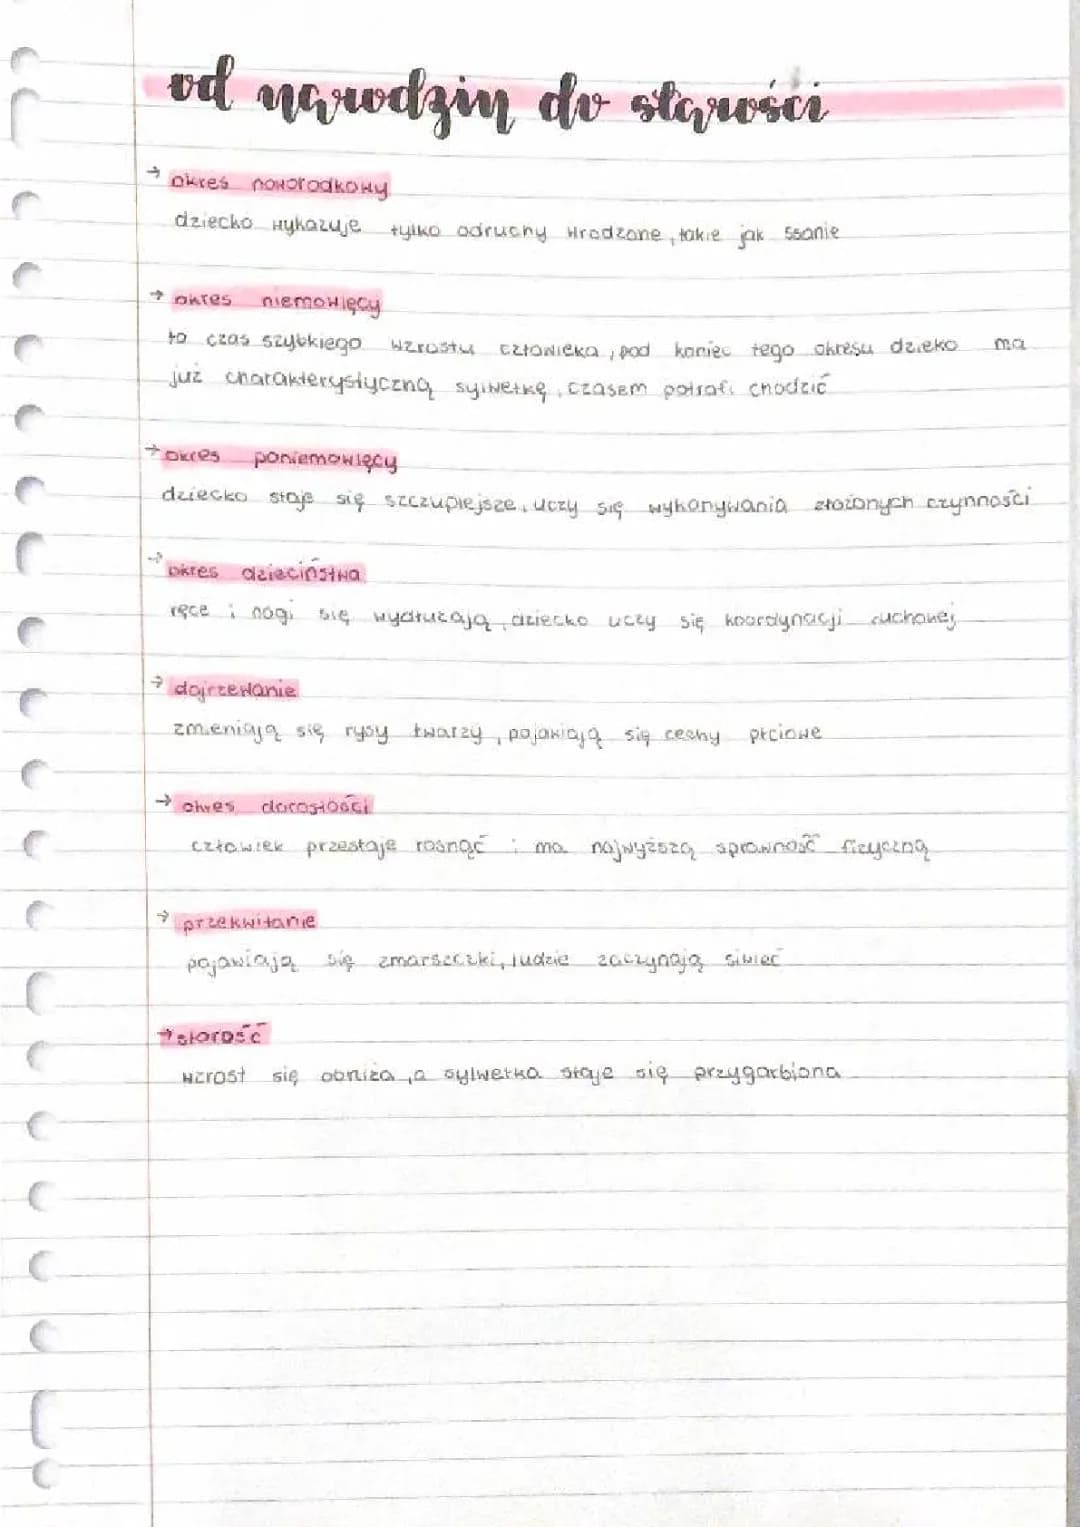 od narodzin do starości
→ okres noworodkowy
dziecko wykazuje tylko odruchy wrodzone, takie jak ssanie
→ okres niemowlęcy
to czas szybkiego wzrostu człowieka, pod koniec tego okresu dzieko ma
już charakterystyczną sylwetkę, czasem potrafi chodzić
→ okres poniemowlęcy
dziecko staje się szczuplejsze, uczy się wykonywania złożonych czynności
→ okres dzieciństwa
ręce i nogi się wydłużają, dziecko uczy się koordynacji ruchowej
→ dojrzewanie
zmieniają się rysy twarzy, pojawiają się cechy płciowe
→ okres dorosłości
człowiek przestaje rosnąć i ma najwyższą sprawność fizyczną
→ przekwitanie
pojawiają się zmarszczki, ludzie zaczynają siwieć
→ starość
wzrost się obniża, a sylwetka staje się przygarbiona